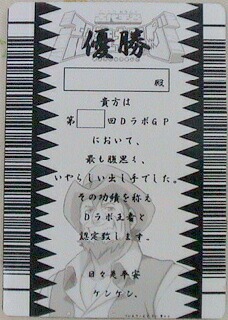 優勝
殿
貴方は
第 回DラボGP
において、
最も腹黒く、
いやらしい出し手でした。
その功績を称え
Dラボ王者と
認定致します。
日々是平安
ケンケン。